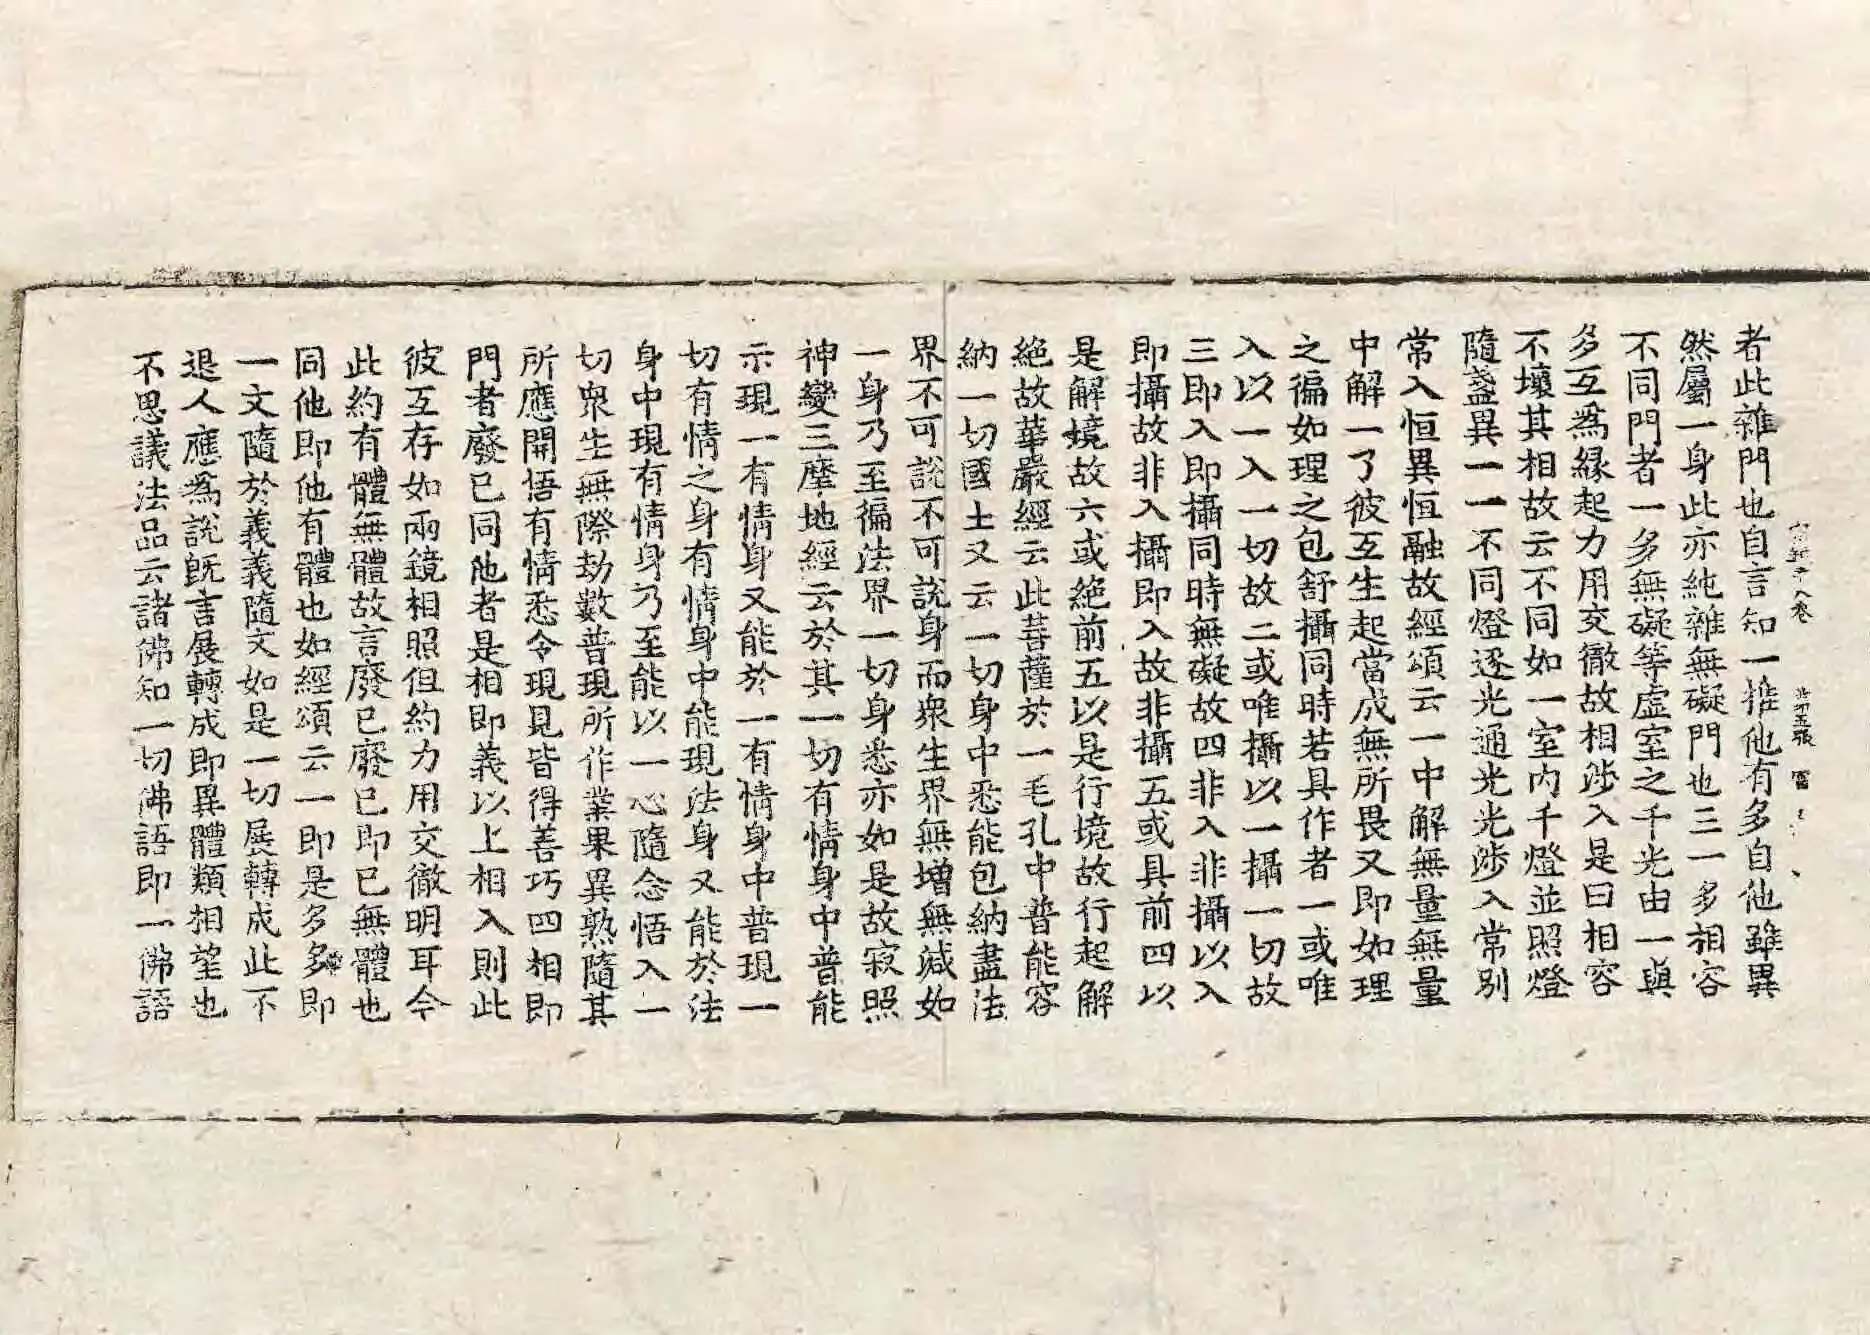 者此雜門也自言知一推他有多自他雖異
然屬一身此亦純雜無礙門也三一多相容
不同門者一多無礙等虛室之千光由一與
多互爲緣起力用交徹故相涉入是曰相容
不壞其相故云不同如一室內千燈並照燈
隨盞異一一不同燈逐光通光光涉入常別
常入恒異恒融故經頌云一中解無量無量
中解一了彼互生起當成無所畏又即如理
之徧如理之包舒攝同時若具作者一或唯
入以一入一切故二或唯攝以一攝一切故
三即入即攝同時無礙故四非入非攝以入
即攝故非入攝即入故非攝五或具前四以
是解境故六或絕前五以是行境故行起解
絕故華嚴經云此菩薩於一毛孔中普能容
納一切國土又云一切身中悉能包納盡法
界不可說不可說身而衆生界無增無減如
一身乃至徧法界一切身悉亦如是故寂照
神變三摩地經云於其一切有情身中普能
示現一有情身又能於一有情身中普現一
切有情之身有情身中能現法身又能於法
身中現有情身乃至能以一心隨念悟入一
切衆生無際劫數普現所作業果異熟隨其
所應開悟有情悉令現見皆得善巧四相即
門者廢已同他者是相即義以上相入則此
彼互存如兩鏡相照但約力用交徹明耳今
此約有體無體故言廢已廢已即已無體也
同他即他有體也如經頌云一即是多多即
一文隨於義義隨文如是一切展轉成此不
退人應爲說旣言展轉成即異體類相望也
不思議法品云諸佛知一切佛語即一佛語